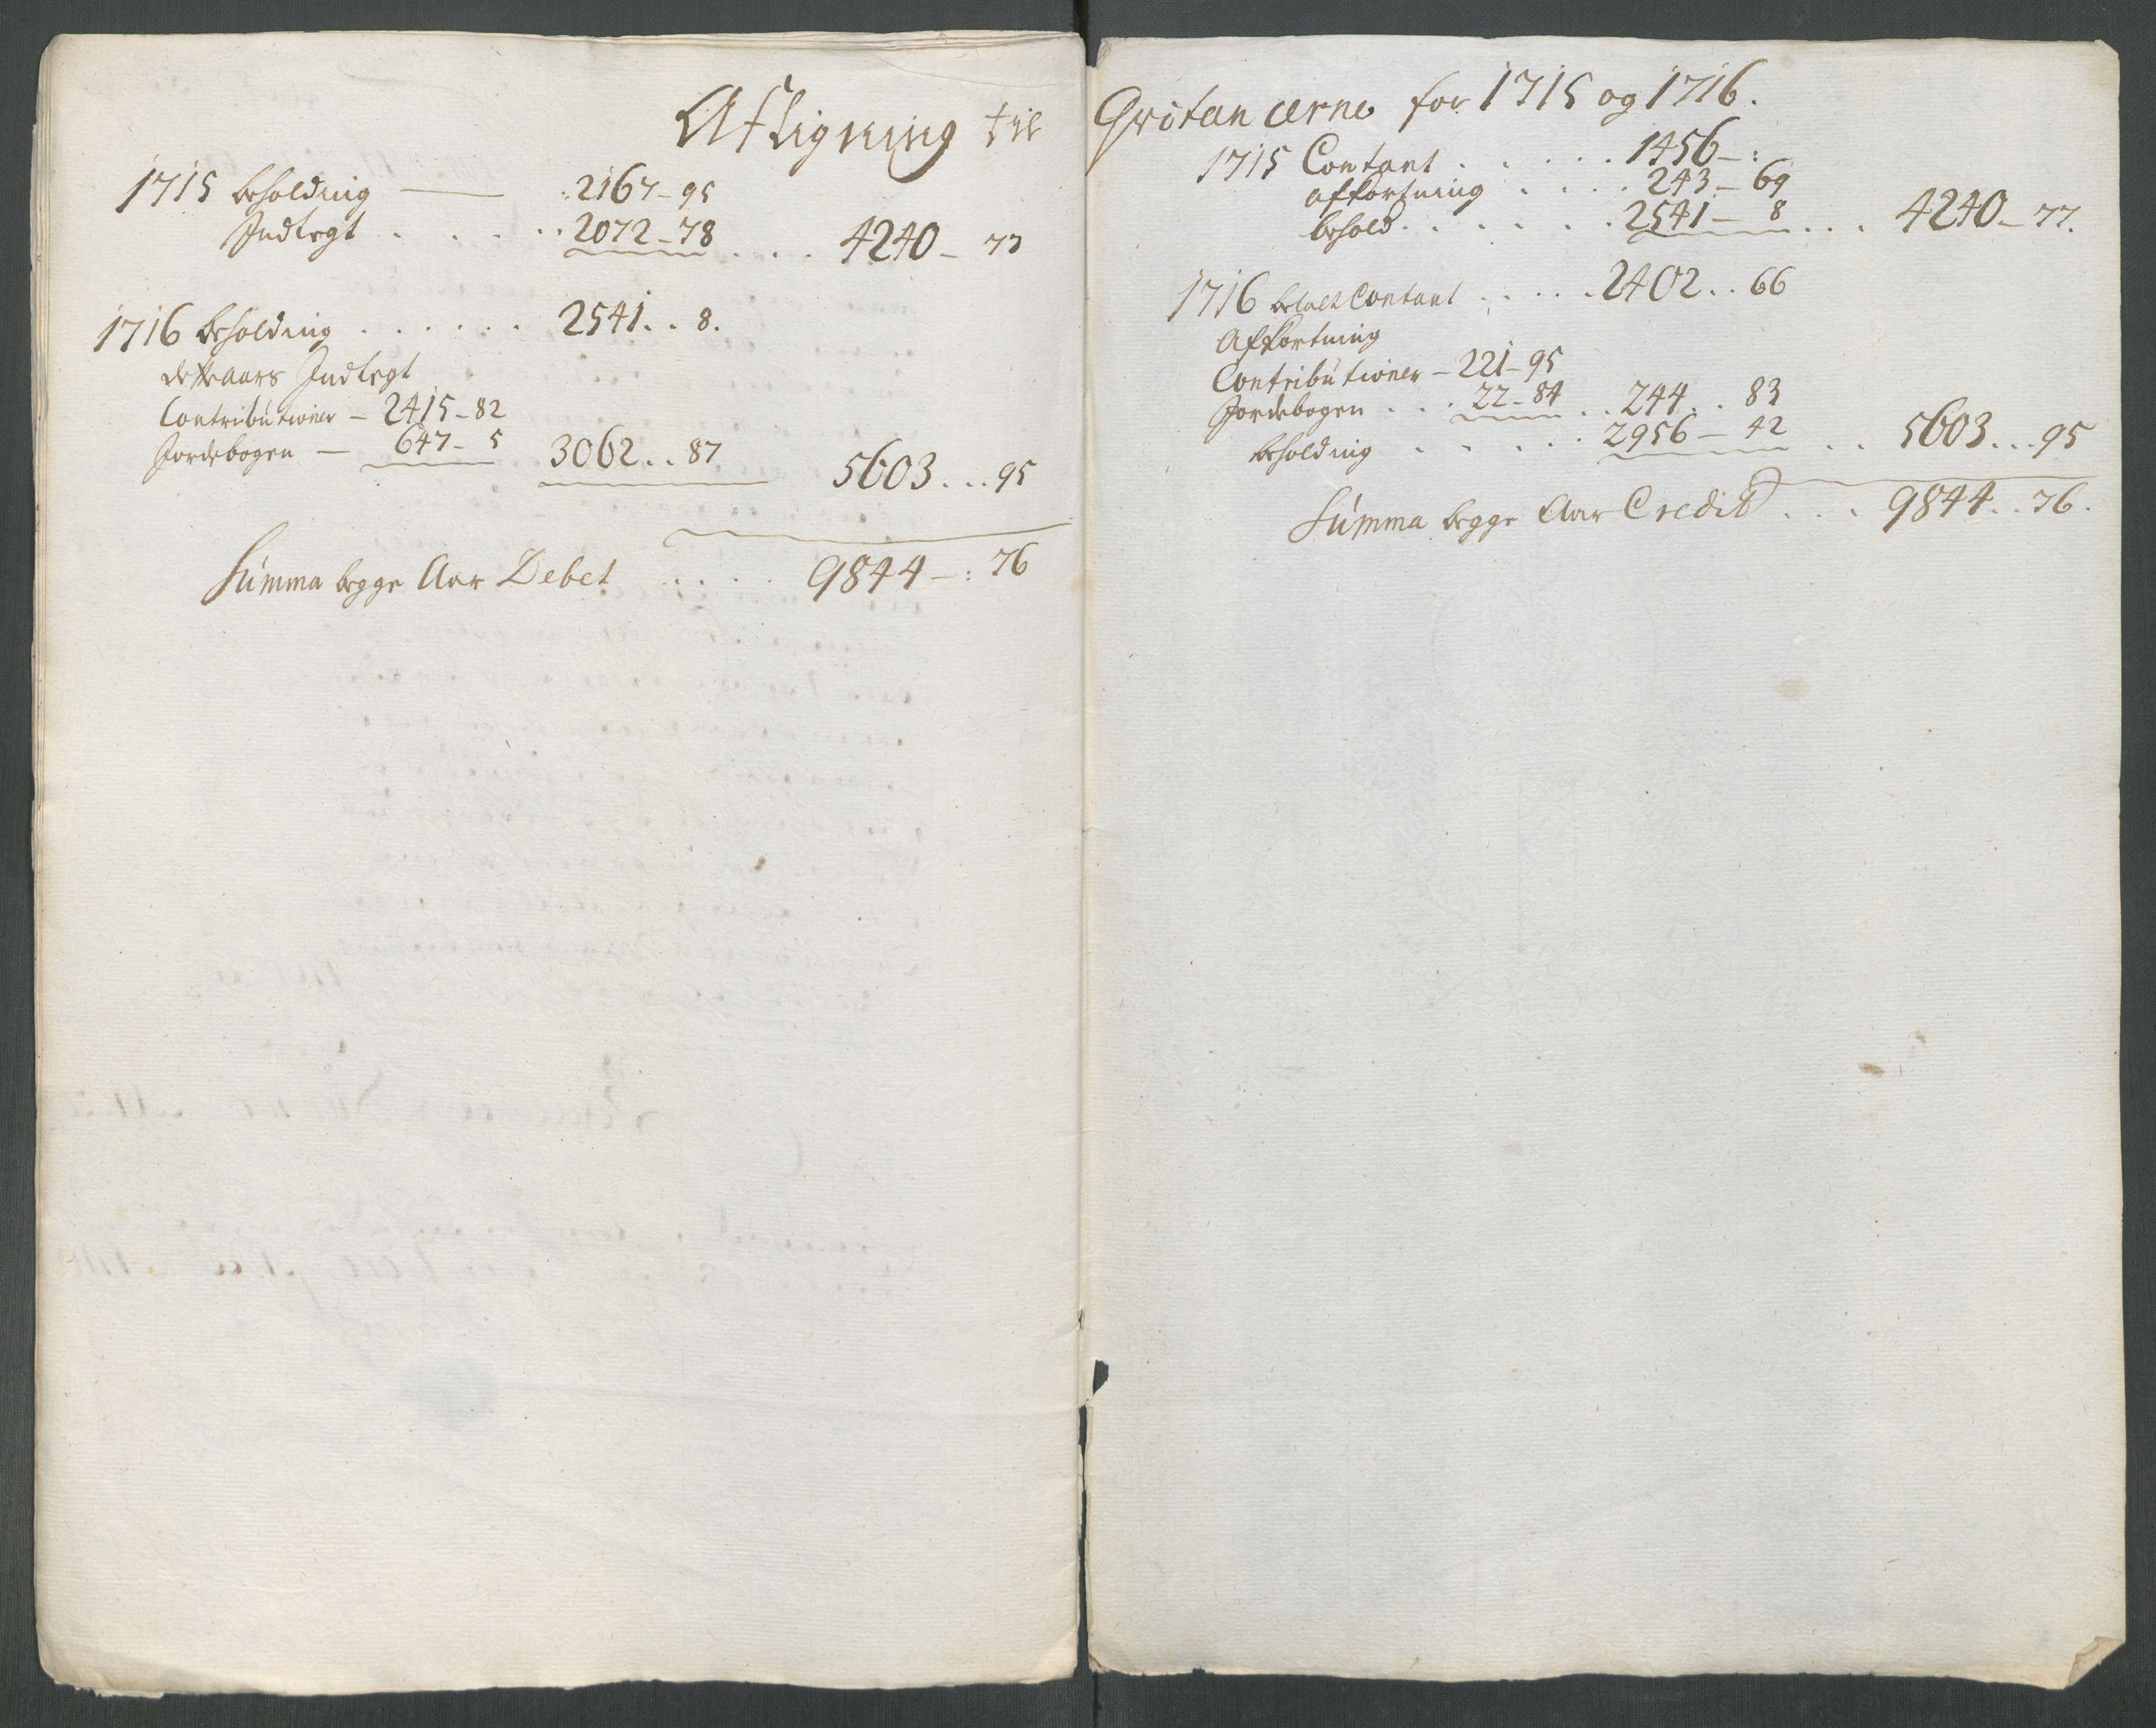 Afligning til
1715 beholding — :2167–95
Indtegt . . . . . 2072–78 . . . 4240– 77
1716 beholding . . . . . . 2541 . . 8.
dette aars Indtegt
Contributioner – 2415–82
Jordebogen — 647– 5 3062 . . 87 5603 . . . 95
Summa begge Aar Debet . . . . 9844 –: 76
Qvitancerne for 1715 og 1716.
1715 Contant . . . . . 1456–:
afkortning . . . . 243 – 69
behold . . . . . . 2541 – 8 . . . 4240– 77.
1716 betalt Contant . . . . 2402 . . 66
Afkortning
Contributioner – 221–95
Jordebogen . . . 22–84 . . 244 . . 83
beholding . . . . . 2956 – 42 . . 5603 . . . 95
Summa begge Aar Credit . . . 9844 . . 76.